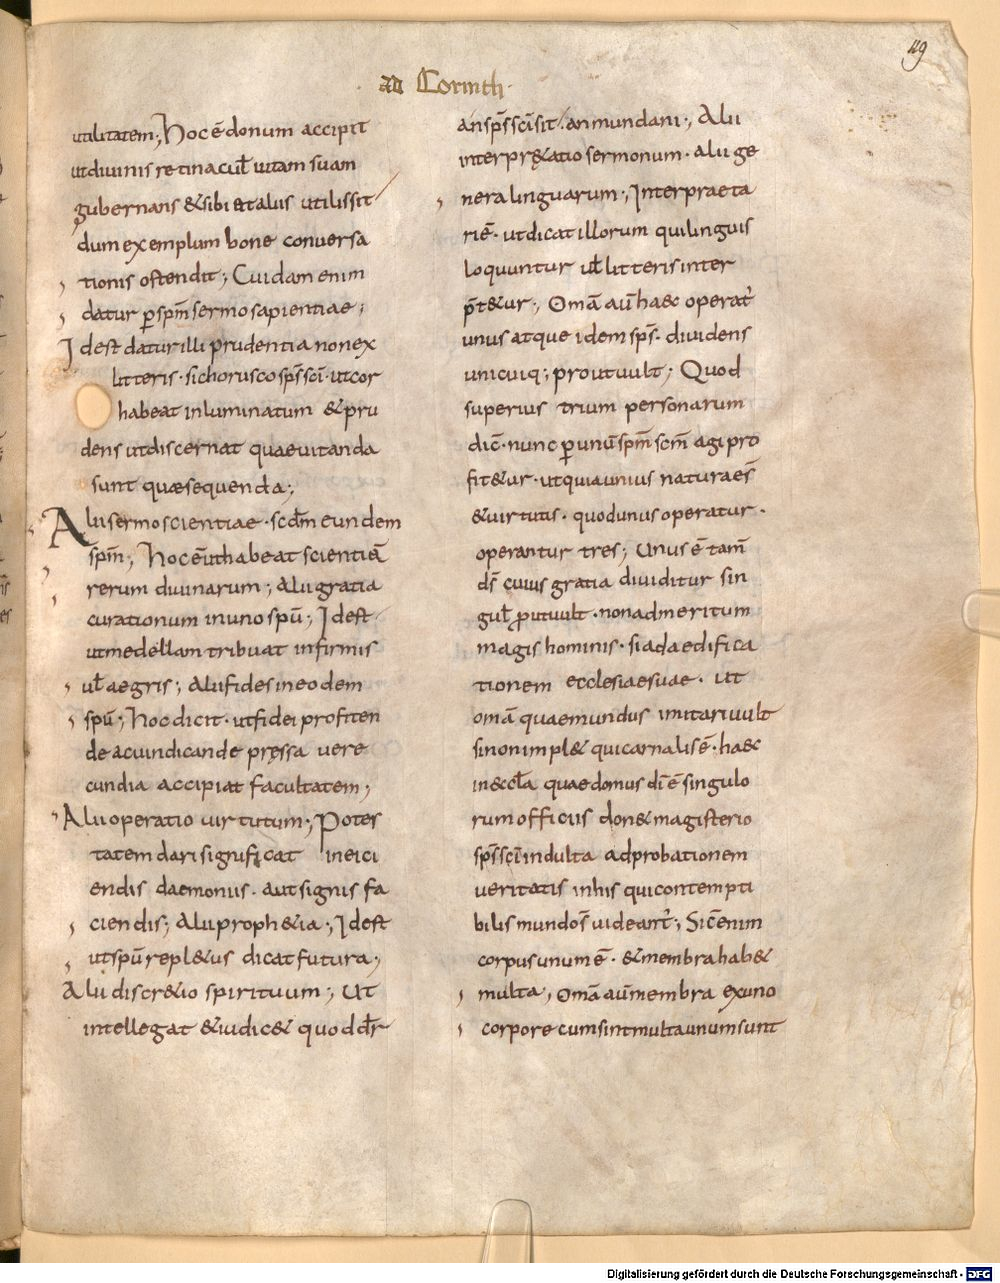 119
ad Corinth·
utilitatem; Hoc ē donum accipit
ut diuinis retinacul̄ uitam suam
gubernans & sibi et aliis utilis sit
dum exemplum bone conversa
tionis ostendit; Cuidam enim
datur ꝑ spm̄ sermo sapientiae;
Idest datur illi prudentia non ex
litteris · sic horusco sps̄ sci · ut cor
habeat inluminatum & pru
dens ut discernat quae uitanda
sunt quæ sequenda;
Alii sermo scientiae · scdm̄ eundem
spm̄; Hoc ē ut habeat scientiā
rerum diuinarum; Alii gratia
curationum in uno spū; Idest
ut medellam tribuat infirmis
ul̄ aegris; Alii fides in eodem
spū; Hoc dicit · ut fidei profiten
de ac uindicande pręssa vere
cundia accipiat facultatem;
Alii operatio uirtutum; Potes
tatem dari significat ineici
endis daemoniis · aut signis fa
ciendis; Alii proph&ia; Idest
ut spū repl&us dicat futura;
Alii discr&io spirituum; Ut
intellegat & iudic& quod dr̄
an sps̄ sci sit · an mundani; Alii
interpr&atio sermonum · alii ge
nera linguarum; Interpraeta
ri ē · ut dicat illorum qui linguis
loquuntur ul̄ litteris inter
p̄t&ur; Omā aū haec operat̄
unus atque idem sps̄ · dividens
unicuiq; prout uult; Quod
superius trium personarum
dic̄ · nunc ꝑ unū spm̄ scm̄ agi pro
fit&ur · ut quia unius naturae s̄
& uirtutis · quod unus operatur ·
operantur tres; Unus ē tam̄
ds̄ cuius gratia diuiditur sin
gul̄ ꝓut uult · non ad meritum
magis hominis · si ad aedifica
tionem ecclesiae suae · ut
omā quae mundus imitari uult
si non impl& qui carnalis ē · haec
in eccl̄a quae domus dī ē singulo
rum officiis don& magisterio
sps̄ sci indulta ad probationem
ueritatis in his qui contempti
bilis mundo s̄ uideant̄; Sic̄ enim
corpus unum ē · & membra hab&
multa; Omā aū membra ex uno
corpore cum sint multa unum sunt
Digitalisierung gefördert durch die Deutsche Forschungsgemeinschaft - DFG